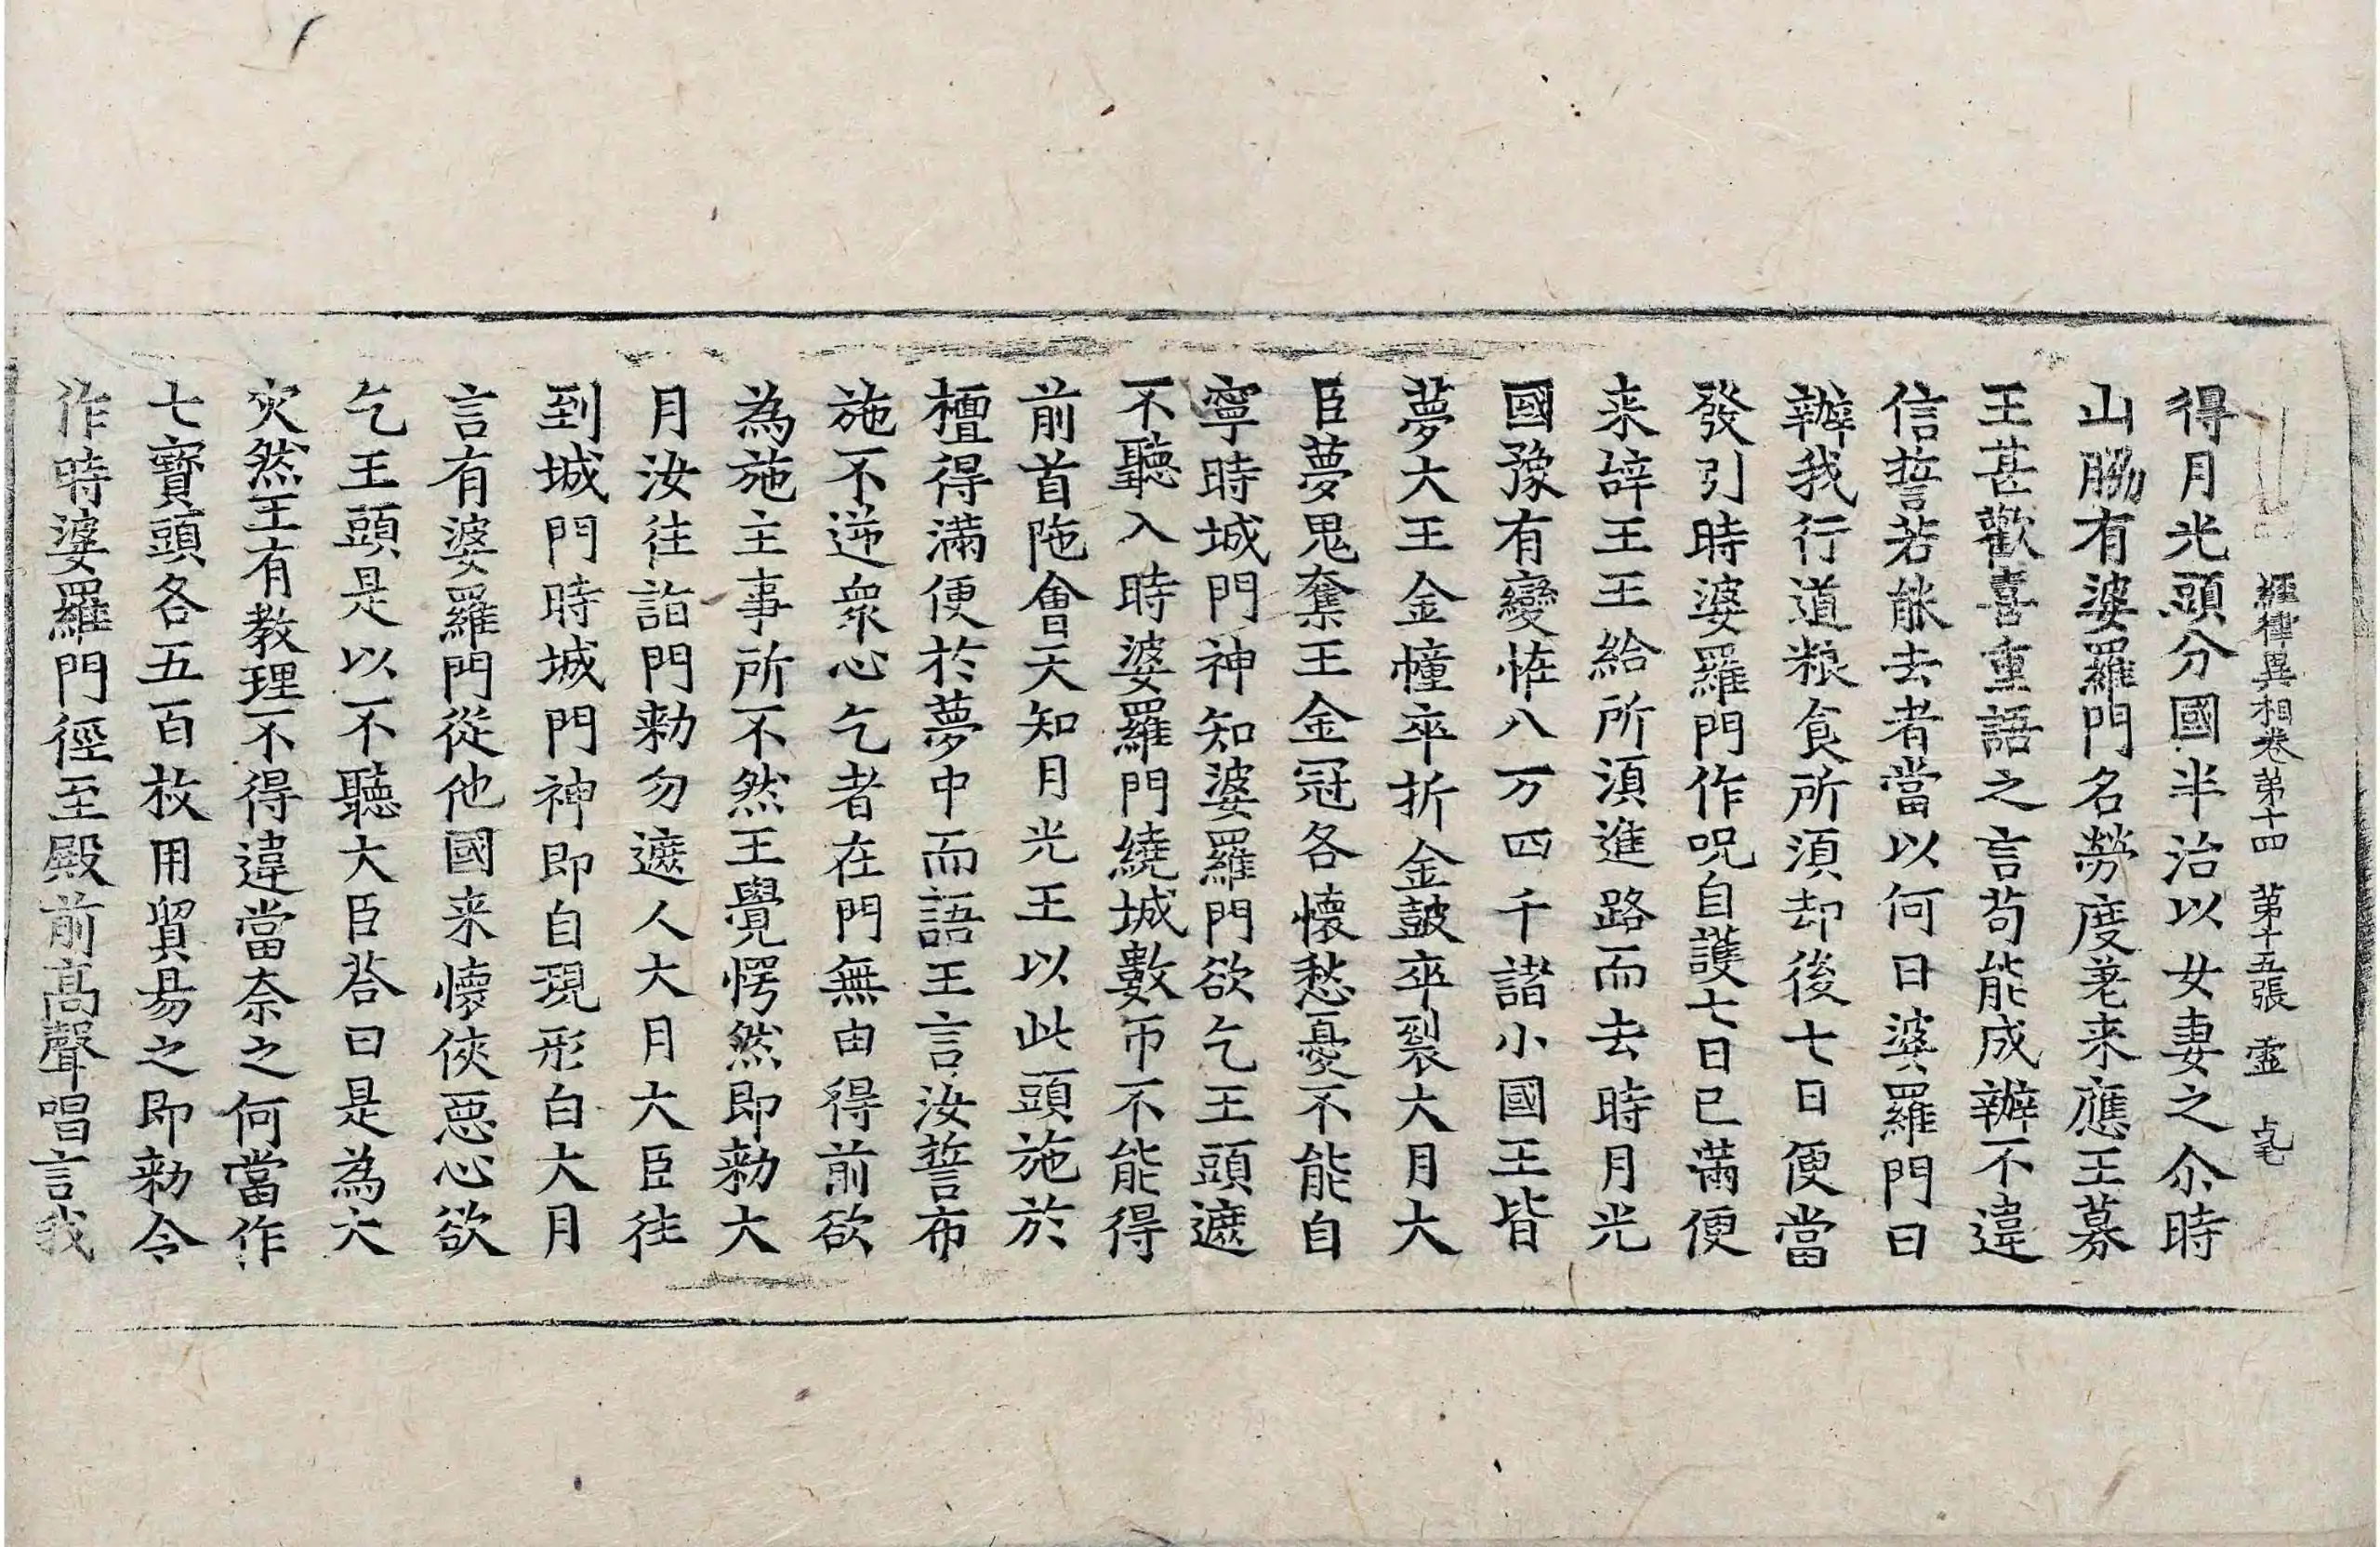 經律異相卷第十四 第十五張 靈
得月光頭分國半治以女妻之尒時
山脇有婆羅門名勞度差来應王募
王甚歡喜重語之言苟能成辦不違
信誓若能去者當以何日婆羅門曰
辦我行道粮食所須却後七日便當
發引時婆羅門作呪自護七日已滿便
来辞王王給所須進路而去時月光
國豫有變恠八万四千諸小國王皆
夢大王金幢卒折金鼓卒裂大月大
臣夢鬼奪王金冠各懷愁憂不能自
寧時城門神知婆羅門欲乞王頭遮
不聽入時婆羅門繞城數帀不能得
前首陁會天知月光王以此頭施於
檀得滿便於夢中而語王言汝誓布
施不逆衆心乞者在門無由得前欲
為施主事所不然王覺愕然即勑大
月汝往詣門勑勿遮人大月大臣往
到城門時城門神即自現形白大月
言有婆羅門從他國来懷俠惡心欲
乞王頭是以不聽大臣荅曰是為大
灾然王有教理不得違當奈之何當作
七寶頭各五百枚用貿易之即勑令
作時婆羅門徑至殿前高聲唱言我